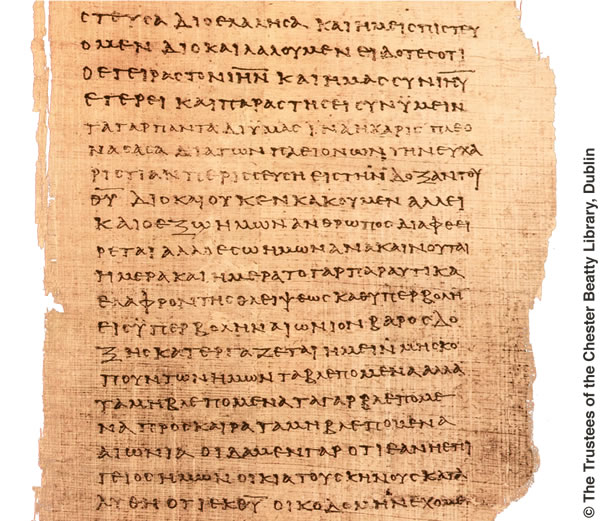 CΤΕΥCΑ ΔΙΟ ΕΛΑΛΗCΑ ΚΑΙ ΗΜΕΙC ΠΙCΤΕΥ
ΟΜΕΝ ΔΙΟ ΚΑΙ ΛΑΛΟΥΜΕΝ ΕΙΔΟΤΕC ΟΤΙ
Ο ΕΓΕΙΡΑC ΤΟΝ Ι̅Η̅Ν̅ ΚΑΙ ΗΜΑC CΥΝ Ι̅Η̅Υ̅
ΕΓΕΡΕΙ ΚΑΙ ΠΑΡΑCΤΗCΕΙ CΥΝ ΥΜΕΙΝ
ΤΑ ΓΑΡ ΠΑΝΤΑ ΔΙ ΥΜΑC ΙΝΑ Η ΧΑΡΙC ΠΛΕΟ
ΝΑCΑCΑ ΔΙΑ ΤΩΝ ΠΛΕΙΟΝΩΝ ΤΗΝ ΕΥΧΑ
ΡΙCΤΙΑΝ ΠΕΡΙCCΕΥCΗ ΕΙC ΤΗΝ ΔΟΞΑΝ ΤΟΥ
Θ̅Υ̅ ΔΙΟ ΚΑΙ ΟΥΚ ΕΝΚΑΚΟΥΜΕΝ ΑΛΛ ΕΙ
ΚΑΙ Ο ΕΞΩ ΗΜΩΝ ΑΝΘΡΩΠΟC ΔΙΑΦΘΕΙ
ΡΕΤΑΙ ΑΛΛ Ο ΕCΩ ΗΜΩΝ ΑΝΑΚΑΙΝΟΥΤΑΙ
ΗΜΕΡΑ ΚΑΙ ΗΜΕΡΑ ΤΟ ΓΑΡ ΠΑΡΑΥΤΙΚΑ
ΕΛΑΦΡΟΝ ΤΗC ΘΛΕΙΨΕΩC ΚΑΘ ΥΠΕΡΒΟΛΗ
ΕΙC ΥΠΕΡΒΟΛΗΝ ΑΙΩΝΙΟΝ ΒΑΡΟC ΔΟ
ΞΗC ΚΑΤΕΡΓΑΖΕΤΑΙ ΗΜΕΙΝ ΜΗ CΚΟ
ΠΟΥΝΤΩΝ ΗΜΩΝ ΤΑ ΒΛΕΠΟΜΕΝΑ ΑΛΛΑ
ΤΑ ΜΗ ΒΛΕΠΟΜΕΝΑ ΤΑ ΓΑΡ ΒΛΕΠΟΜΕ
ΝΑ ΠΡΟCΚΑΙΡΑ ΤΑ ΜΗ ΒΛΕΠΟΜΕΝΑ
ΑΙΩΝΙΑ ΟΙΔΑΜΕΝ ΓΑΡ ΟΤΙ ΕΑΝ Η ΕΠΙ
ΓΕΙΟC ΗΜΩΝ ΟΙΚΙΑ ΤΟΥ CΚΗΝΟΥC ΚΑΤΑ
ΛΥΘΗ ΟΤΙ ΕΚ Θ̅Υ̅ ΟΙΚΟΔΟΜΗΝ ΕΧΟΜΕ
© The Trustees of the Chester Beatty Library, Dublin